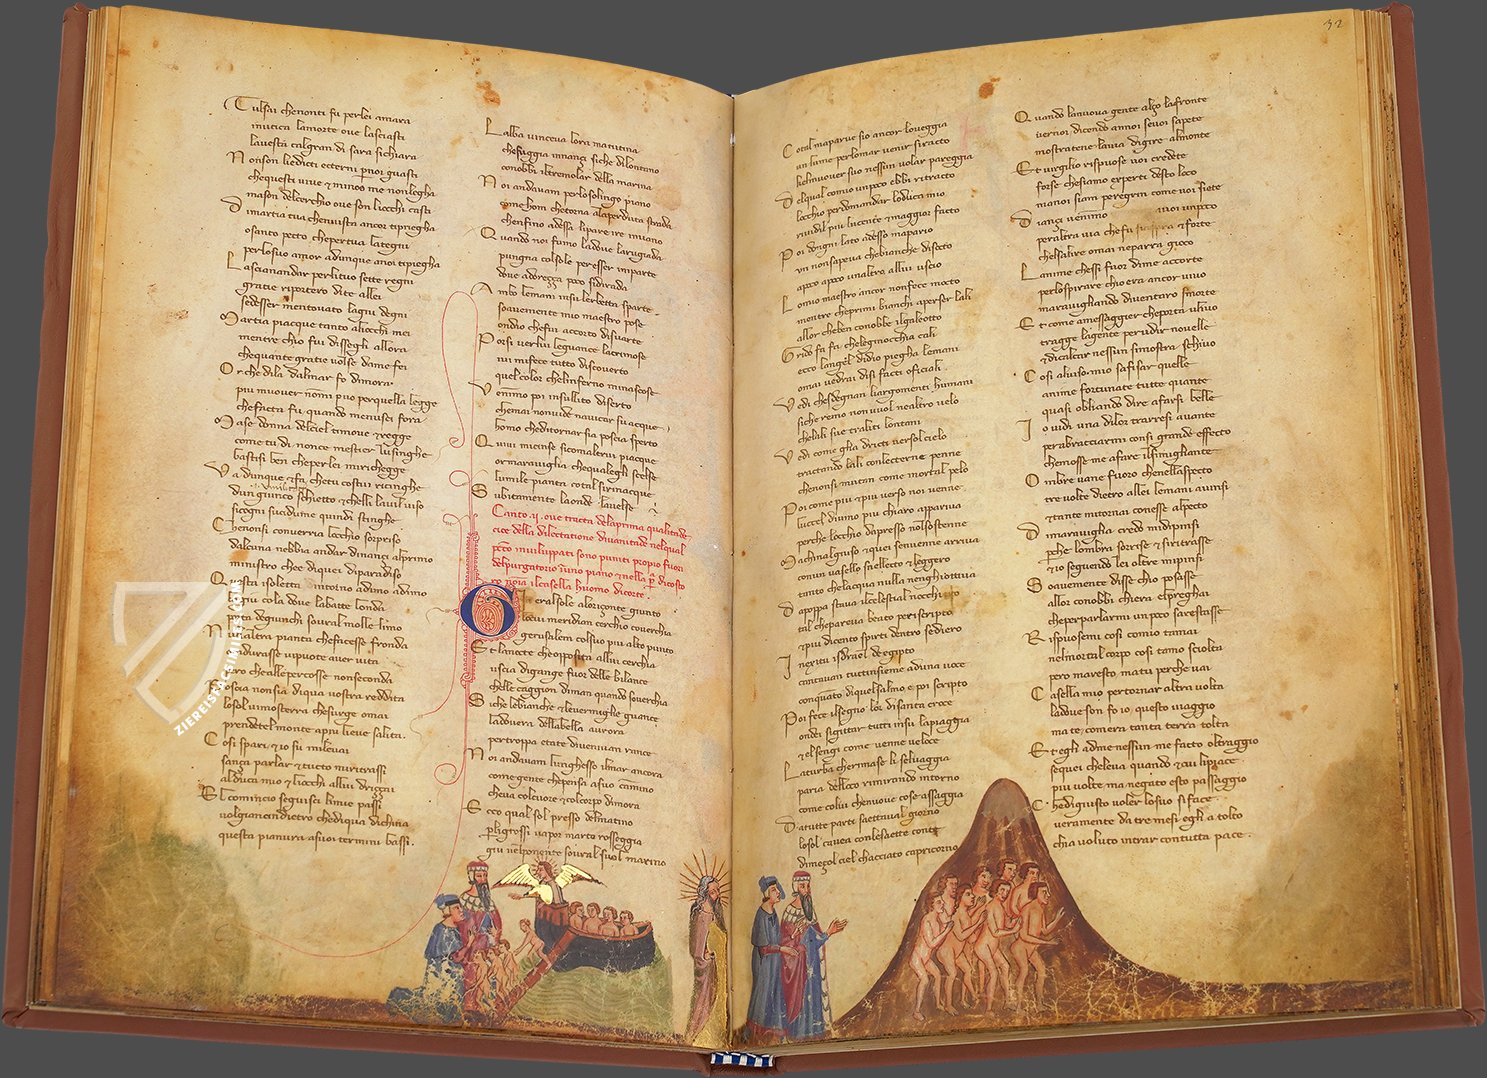 Tulsai chenonti fu perlei amara
inutica lamorte oue lasciasti
lauesta calgran di sara sichiara
Nonson liedicti eccerni pnoi guasti
chequesti uiue & minos me nonlegha
mason delcerchio oue son liocchi casti
Dimartia tua chenuista ancor tipriegha
osancto pecto chepertua lategni
perlosuo amor adunque anoi tipiegha
Lascianandar perlituo sette regni
gratie riportero dite allei
sedesser mentouato lagiu degni
Martia piacque tanto aliocchi mei
mentre chio fui dissegli allora
chequante gratie uolse dame fei
Orche dila dalmar fo dimora
piu muouer nommi puo perquella legge
chefacta fu quando menusci fora
Mase donna delciel timoue & regge
come tu di nonce mestier lusinghe
bastisi ben cheperlei mirichegge
Va adunque & fa chetu costui ricinghe
dungiunco schietto & chelli laui luiso
sicogni sucidume quindi stinghe
Chenonsi conuerria locchio sorpriso
dalcuna nebbia andar dinançi alprimo
ministro chee diquei diparadiso
Questa isoletta intorno adimo adimo
piu cola doue labatte londa
porta degiunchi soural molle limo
Nunaltra pianta chefacesse fronda
indurasse uipuote auer uita
pero cheallepercosse nonseconda
Poscia nonsia diqua uostra reddita
losol uimosterra chesurge omai
prendetel monte apiu lieue salita.
Cosi spari & io su mileuai
sança parlar & tucto miritrassi
alduca mio & liocchi allui driççai
El comincio seguisci limie passi
uolgianci indietro chediqua dichina
questa pianura asuoi termini bassi.
Lalba uinceua lora matutina
chefuggia innançi siche dilontano
conobbi iltremolar della marina
Noi andauam perlosolingo piano
come hom chetorna alaperduta strada
chenfino adessa lipare ire inuano
Quando noi fumo ladoue larugiada
pungna colsole peresser imparte
doue adoreçça poco sidirada
Ambo lemani insu lerbetta sparte
soauemente mio maestro pose
ondio chefui accorto disuarte
Porsi uerlui leguance lacrimose
iui mifece tutto discouerto
quel color chelinferno minascose
Venimmo poi insullito diserto
chemai nonuide nauicar sue acque
homo cheditornar sia poscia sperto
Quiui micinse sicomaltrui piacque
omarauiglia chequalegli scelse
lumile pianta cotal sirinacque
Subitamente laonde lauelse
Canto .ii. oue tracta delaprima qualitade
cioe della dilectatione diuanitade nelqual
pccto inuiluppati sono puniti propio fuori
delpurgatorio inuno piano & nella pa dicosto
ro noia ilcasella huomo dicorte.
Gia eralsole aloriçonte giunto
locui meridian cerchio couerchia
gerusalem colsuo piu alto punto
Et lanocte cheopposita allui cerchia
uscia digange fuor delle bilance
chelle caggion diman quando souerchia
Siche lebianche & leuermiglie guance
ladouera dellabella aurora
pertroppa etate diuenian rance
Noi andauam lunghesso ilmar ancora
come gente chepensa asuo camino
cheua colcuore & colcorpo dimora
Ecco qual sol presso delmatino
pligrossi uapor marte rosseggia
giu nelponente soural suol marino
32
Cotal maparue sio ancor loueggia
un lume perlomar uenir siracto
chelmuouer suo nessun uolar pareggia
Delqual comio unpoco ebbi ritracto
locchio perdomandar loduca mio
riuidil piu lucente & maggior facto
Poi dogni lato adesso mapario
un nonsapeua chebianche disocto
apoco apoco unaltro allui uscio
Lomio maestro ancor nonfece mocto
mentre cheprimi bianchi aperser lali
allor cheben conobbe ilgaleotto
Grido fa fa chelegenocchia cali
ecco langel didio piegha lemani
omai uedrai disi facti oficiali
Vedi chesdegnan liargomenti humani
siche remo non uuol nealtro uelo
chelali sue traliti lontani
Vedi come gha dricti uersol cielo
tractando lali conlecterne penne
chenonsi mutan come mortal pelo
Poi come piu & piu uerso noi uenne
luccel diuino piu chiaro appariua
perche locchio dapresso nolsostenne
Machinalgiuso & quei senuenne arriua
conun uasello snellecto & leggero
tanto chelacqua nulla nenghiottiua
Dapoppa staua ilcelestial nocchiero
tal cheparea beato periscripto
& piu dicento spirti dentro sediero
Inexitu isdrael degipto
contauan tuctinsieme aduna uoce
conquanto diquelsalmo e poi scripto
Poi fece ilsegno loi disanta croce
ondei sigittar tutti insu lapiaggia
& elsengi come uenne ueloce
Laturba cherimase li seluaggia
parea delloco rimirando intorno
come colui chenuoue cose assaggia
Datutte parti saettaual giorno
losol cauea conlesaette conte
dimeçol ciel chacciato capricorno
Quando lanuoua gente alço lafronte
uernoi dicendo annoi seuoi sapete
mostratene lauia digire almonte
Et uirgilio rispuose uoi credete
forse chesiamo experti desto loco
manoi siam peregrin come uoi siete
Dianci uenimmo uoi unpoco
peraltra uia che fu & forte
chelsalire omai neparra gioco
Lanime chessi fuor dime accorte
perlospirare chio era ancor uiuo
marauigliando diuentaro smorte
Et come amessaggier cheporta uliuo
tragge lagente perudir nouelle
& dicalcar nessun simostra schiuo
Cosi aluiso mio safisar quelle
anime fortunate tutte quante
quasi obliando dire afarsi belle
Io uidi una dilor trarresi auante
perabracciarmi consi grande effecto
chemosse me afare ilsimigliante
Ombre uane fuoro chenellaspecto
tre uolte dietro allei lemani auinsi
& tante mitornai conesse alpecto
Dimarauiglia credo midipinsi
perche lombra sorrise & siritrasse
& io seguendo lei oltre mipinsi
Soauemente disse chio posasse
allor conobbi chiera elpreghai
cheperparlarmi unpoco sarestasse
Rispuosemi cosi comio tamai
nelmortal corpo cosi tamo sciolta
pero maresto, ma tu perche uai
Casella mio pertornar altra uolta
ladoue son fo io questo uiaggio
ma te comera tanta terra tolta
Et egli adme nessun me facto oltraggio
sequei cheleua quando & cui lipiace
piu uolte ma negato esto passaggio
Chedigiusto uoler losuo si face
ueramente da tre mesi egli a tolto
chia uoluto intrar contutta pace.
ZIEREISFACSIMILES.COM